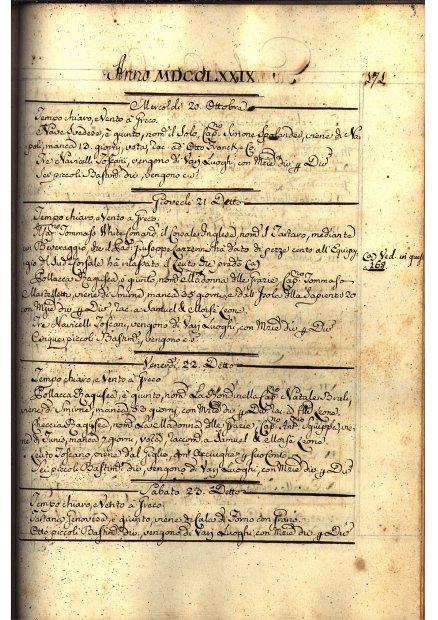 Anno MDCCLXXIX
171
Mercoldì 20 Ottobre
Tempo chiaro, e Vento à Greco.
Nave Svedese, è giunto, nom.ᵗᵃ il Sole, Cap. Simone, viene di Na=
poli, manca 12 giorni, vota, rac. ad Otto Franck, e C.
Tre Navicelli Toscani, vengono di Varj Luoghi, con Mrzie div. p Div.
Sei piccoli Bastim. div., vengono c. s.
Giovedì 21 Detto
Tempo chiaro, e Vento à Greco.
Il Cap. Tommaso White Comand. il Corsale Inglese, nom. il Tartaro, mediante
un Beveraggio, che il Pad. Giuseppe ha dato di pezze cento all' Equipag=
gio del sud. Corsale hà rilasciato il Leuto che predò
Ved. in questo
a 169
Pollacca Ragusea, è giunto, nom. La Madonna delle Grazie, Cap. Tommaso
viene di Smirne, manca 35 giorni, e dall' Isola della Sapienza 20
con Mrzie p Div., rac. a Samuel, e Moisè Leone.
Tre Navicelli Toscani, vengono di Varj Luoghi, con Mrzie div. p Div.
Cinque piccoli Bastim., vengono c. s.
Venerdì 22 Detto
Tempo chiaro, e Vento à Greco
Pollacca Ragusea, è giunto, nom. La Rondinella, Cap. Natale,
viene di Smirne, manca 30 giorni, con Mrzie p Div., rac. a Leone.
Checcia Ragusea, nom. La Madonna delle Grazie, Cap. Ant., vie=
ne di Tunis, manca 7 giorni, vota, raccom. a Samuel, e Moisè Leone.
Leuto Toscano, viene dal Giglio, con Acciughe, p suo conto
Sei piccoli Bastim. div., vengono di Varj Luoghi, con Mrzie div. p Div.
Sabato 23 Detto
Tempo chiaro, e Vento à Greco
Tartana Genovese, è giunto, viene di Cala di Forno con Grano
Otto piccoli Bastim. div., vengono di Varj Luoghi, con Mrzie div. p Div.